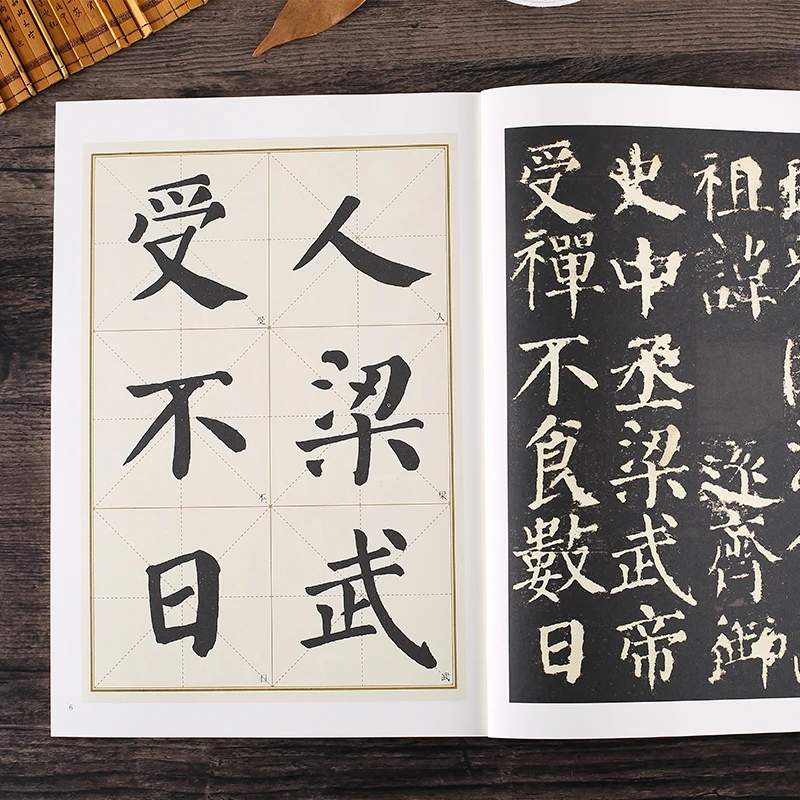 人梁武
受不日
人
梁
武
受
不
日
6
祖諱齊御
史中丞梁武帝
受禪不食數日